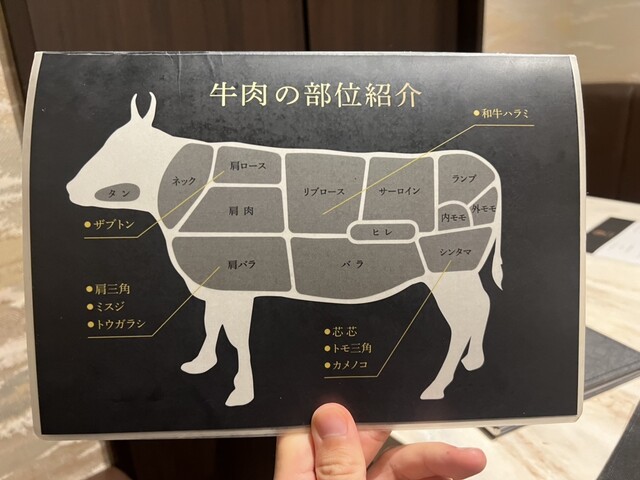 牛肉の部位紹介
和牛ハラミ
タン
ネック
肩ロース
肩肉
リブロース
サーロイン
ランプ
内モモ
外モモ
ヒレ
肩バラ
バラ
シンタマ
ザブトン
肩三角
ミスジ
トウガラシ
芯芯
トモ三角
カメノコ